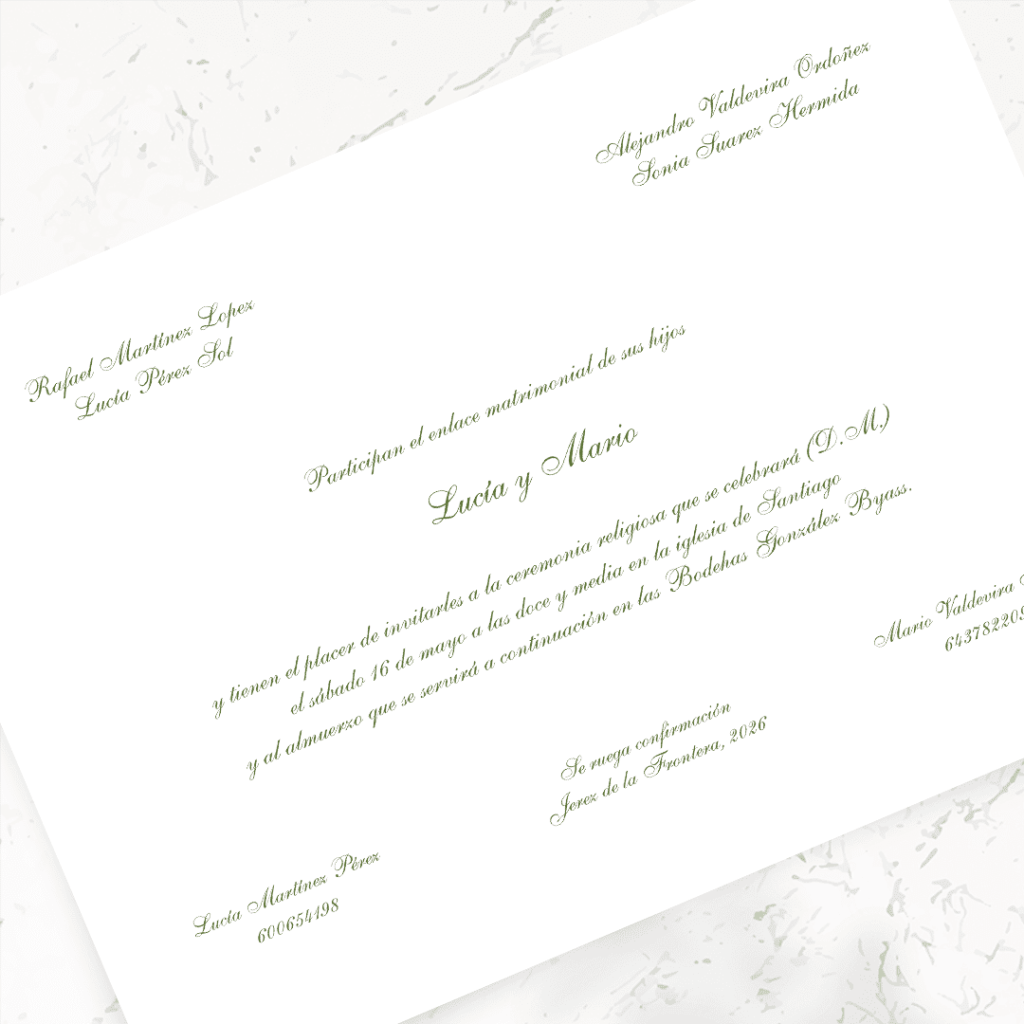 Rafael Martínez Lopez
Lucía Pérez Sol
Alejandro Valdevira Ordoñez
Sonia Suarez Hermida
Participan el enlace matrimonial de sus hijos
Lucía y Mario
y tienen el placer de invitarles a la ceremonia religiosa que se celebrará (D.M.)
el sábado 16 de mayo a las doce y media en la iglesia de Santiago
y al almuerzo que se servirá a continuación en las Bodehas González Byass.
Se ruega confirmación
Jerez de la Frontera, 2026
Lucía Martínez Pérez
600654198
Mario Valdevira
64378220